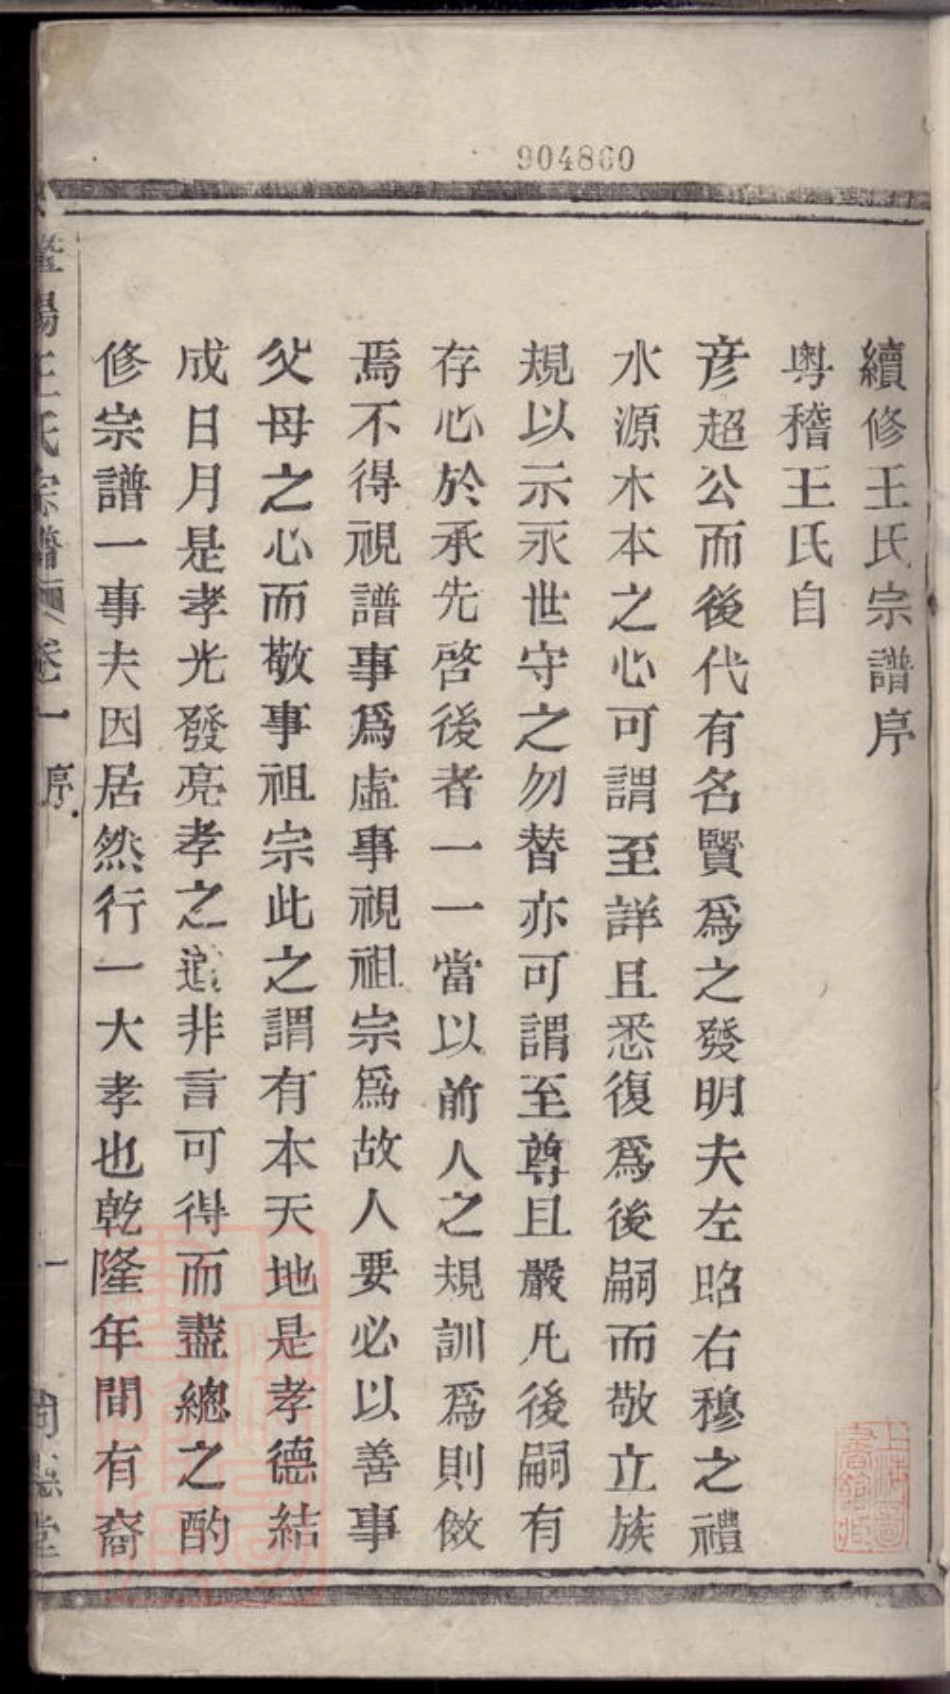 904860
續修王氏宗譜序
粤稽王氏自
彦超公而後代有名賢爲之發明夫左昭右穆之禮
水源木本之心可謂至詳且悉復爲後嗣而敬立族
規以示永世守之勿替亦可謂至尊且嚴凡後嗣有
存心於承先啓後者一一當以前人之規訓爲則儆
焉不得視譜事爲虛事視祖宗爲故人要必以善事
父母之心而敬事祖宗此之謂有本天地是孝德結
成日月是孝光發亮孝之道非言可得而盡總之酌
修宗譜一事夫因居然行一大孝也乾隆年間有裔
暨陽王氏宗譜 卷一 序 一 堂
上海圖書館藏